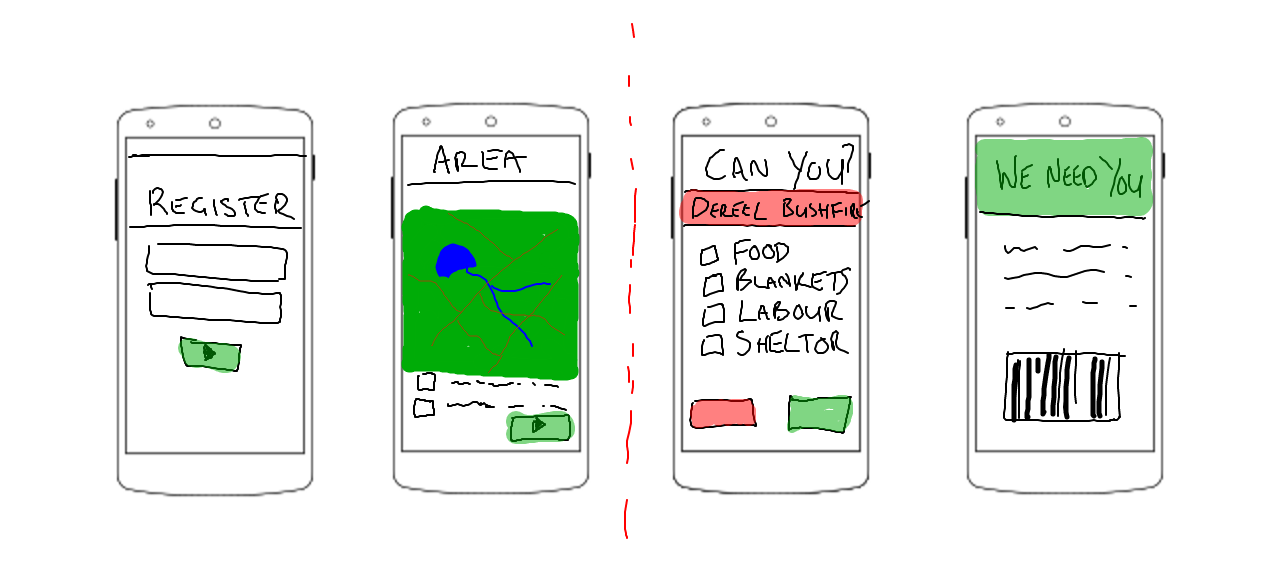 REGISTER
AREA
CAN YOU?
DEREEL BUSHFIRE
FOOD
BLANKETS
LABOUR
SHELTOR
WE NEED YOU